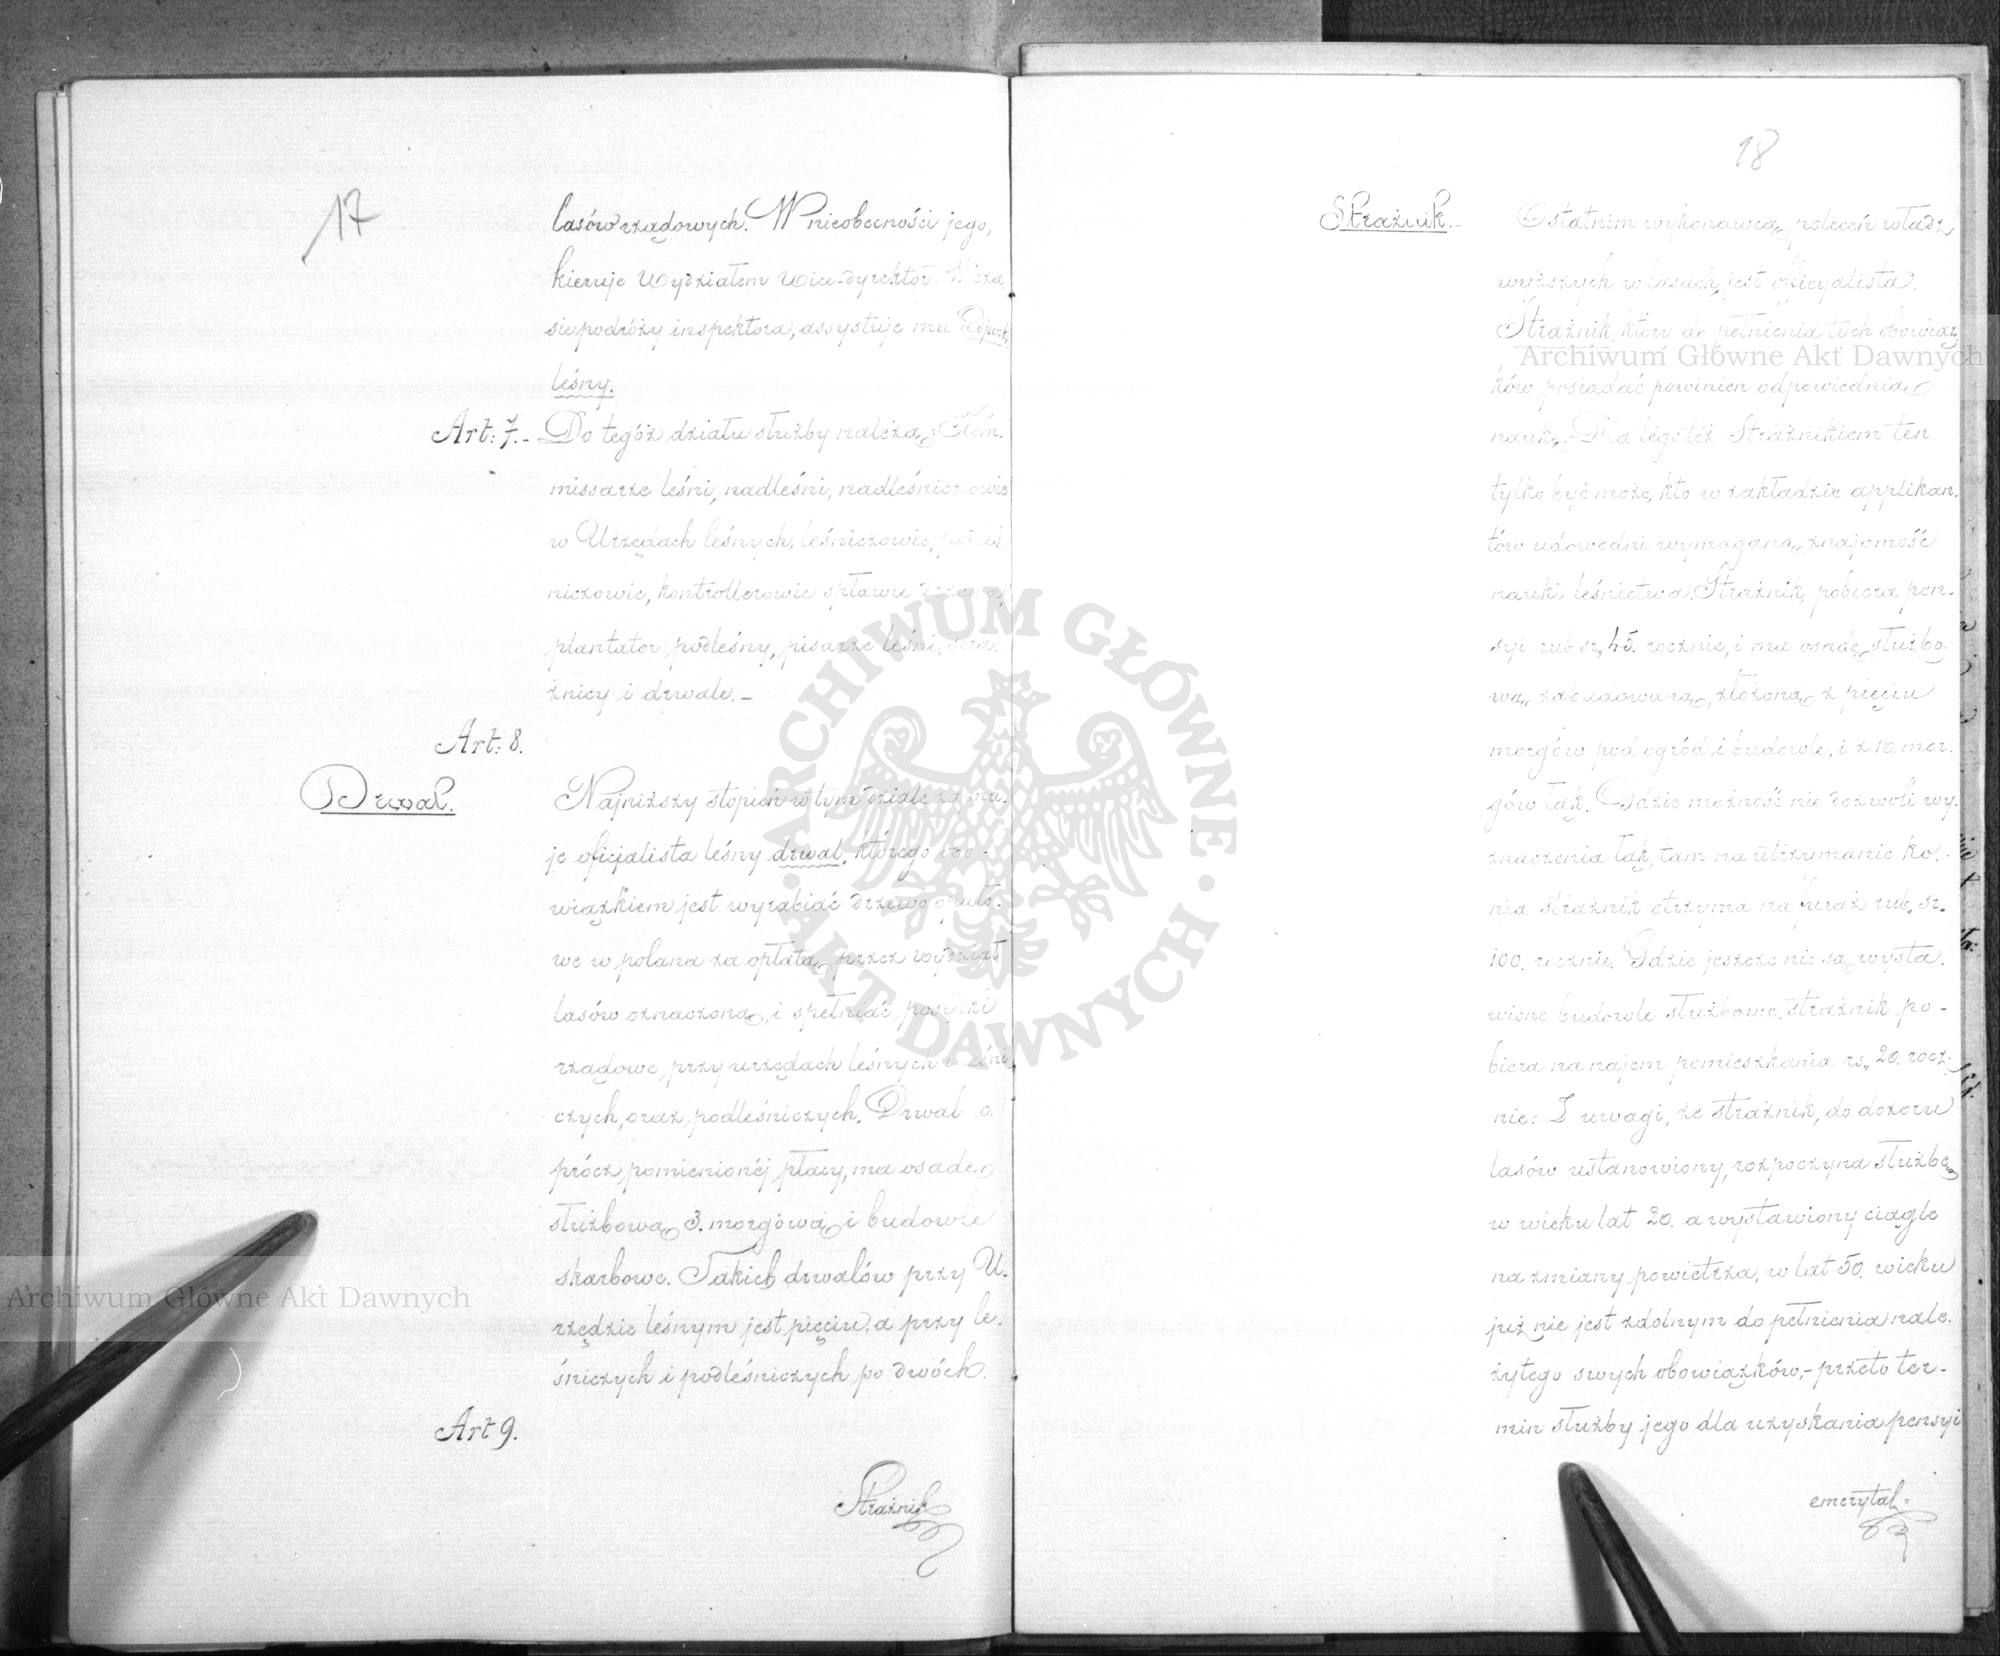 17
lasów rządowych. W nieobecności jego,
kieruje Wydziałem Vice-dyrektor. W cza,
sie podróży inspektora, assystuje mu Adjunkt
leśny.
Art: 7. - Do tegóż działu służby należą:
missarze leśni, nadleśni, nadleśniczowie
w Urzędach leśnych, leśniczowie, podleś.
niczowie, kontrollerowie spławu drzewa,
plantator podleśny, pisarze leśni, stra.
żnicy i drwale. -
Art: 8.
Drwal.
Najniższy stopień w tym dziale zajmu.
je oficjalista leśny drwal, którego obo-
wiązkiem jest wyrabiać drzewo
we w polana za opłatą przez wydział
lasów oznaczoną, i spełniać posyłki
rządowe, przy urzędach leśnych i leśni
czych, oraz podleśniczych. Drwal o.
prócz pomienionéj płacy, ma osadę
służbową 3. morgową i budowle
skarbowe. Takich drwalów przy U.
rzędzie leśnym jest pięciu, a przy le.
śniczych i podleśniczych po dwóch.
Art 9.
Strażnik
18
Strażnik. -
Ostatnim wykonawcą poleceń władz
wyższych w lasach, jest oficyalista
Strażnik, który do pełnienia tych obowiąz
ków posiadać powinien odpowiednią
naukę. Dla tego téż Strażnikiem ten
tylko być może, kto w zakładzie applikan.
tów udowodni wymaganą znajomość
nauki leśnictwa. Strażnik, pobiera pen-
syi rub sr, 45. rocznie, i ma osadę służbo.
wą, zabudowaną, złożoną z pięciu
morgów pod ogród i budowle, i z 10. mor.
gów łąk. Gdzie możność nie dozwoli wy.
znaczenia łąk, tam na utrzymanie ko. -
nia strażnik otrzyma na furaż rub. sr.
100. rocznie. Gdzie jeszcze nie są wysta.
wione budowle służbowe, strażnik po -
biera na najem pomieszkania rs, 20. rocz.
nie: Z uwagi, że strażnik, do dozoru
lasów ustanowiony, rozpoczyna służbę
w wieku lat 20. a wystawiony ciągle
na zmiany powietrza, w lat 50. wieku
już nie jest zdolnym do pełnienia nale.
żytego swych obowiązków, - przeto ter-
min służby jego dla uzyskania pensyi
emerytal =
Archiwum Główne Akt Dawnych
Archiwum Główne Akt Dawnych
ARCHIWUM GŁÓWNE AKT DAWNYCH